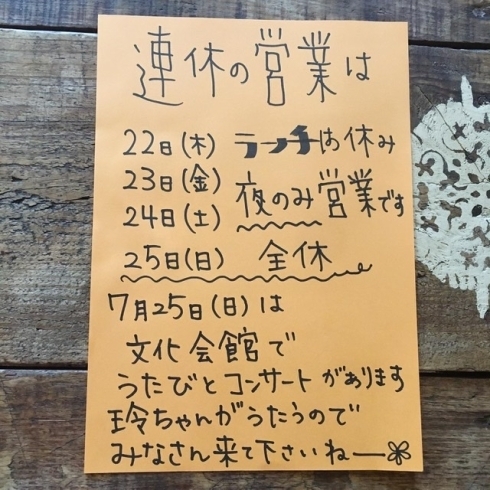 連休の営業は
22日(木) ランチはお休み
23日(金) 夜のみ営業です
24日(土)
25日(日) 全休
7月25日(日)は
文化会館で
うたびとコンサートがあります
玲ちゃんがうたうので
みなさん来て下さいねー